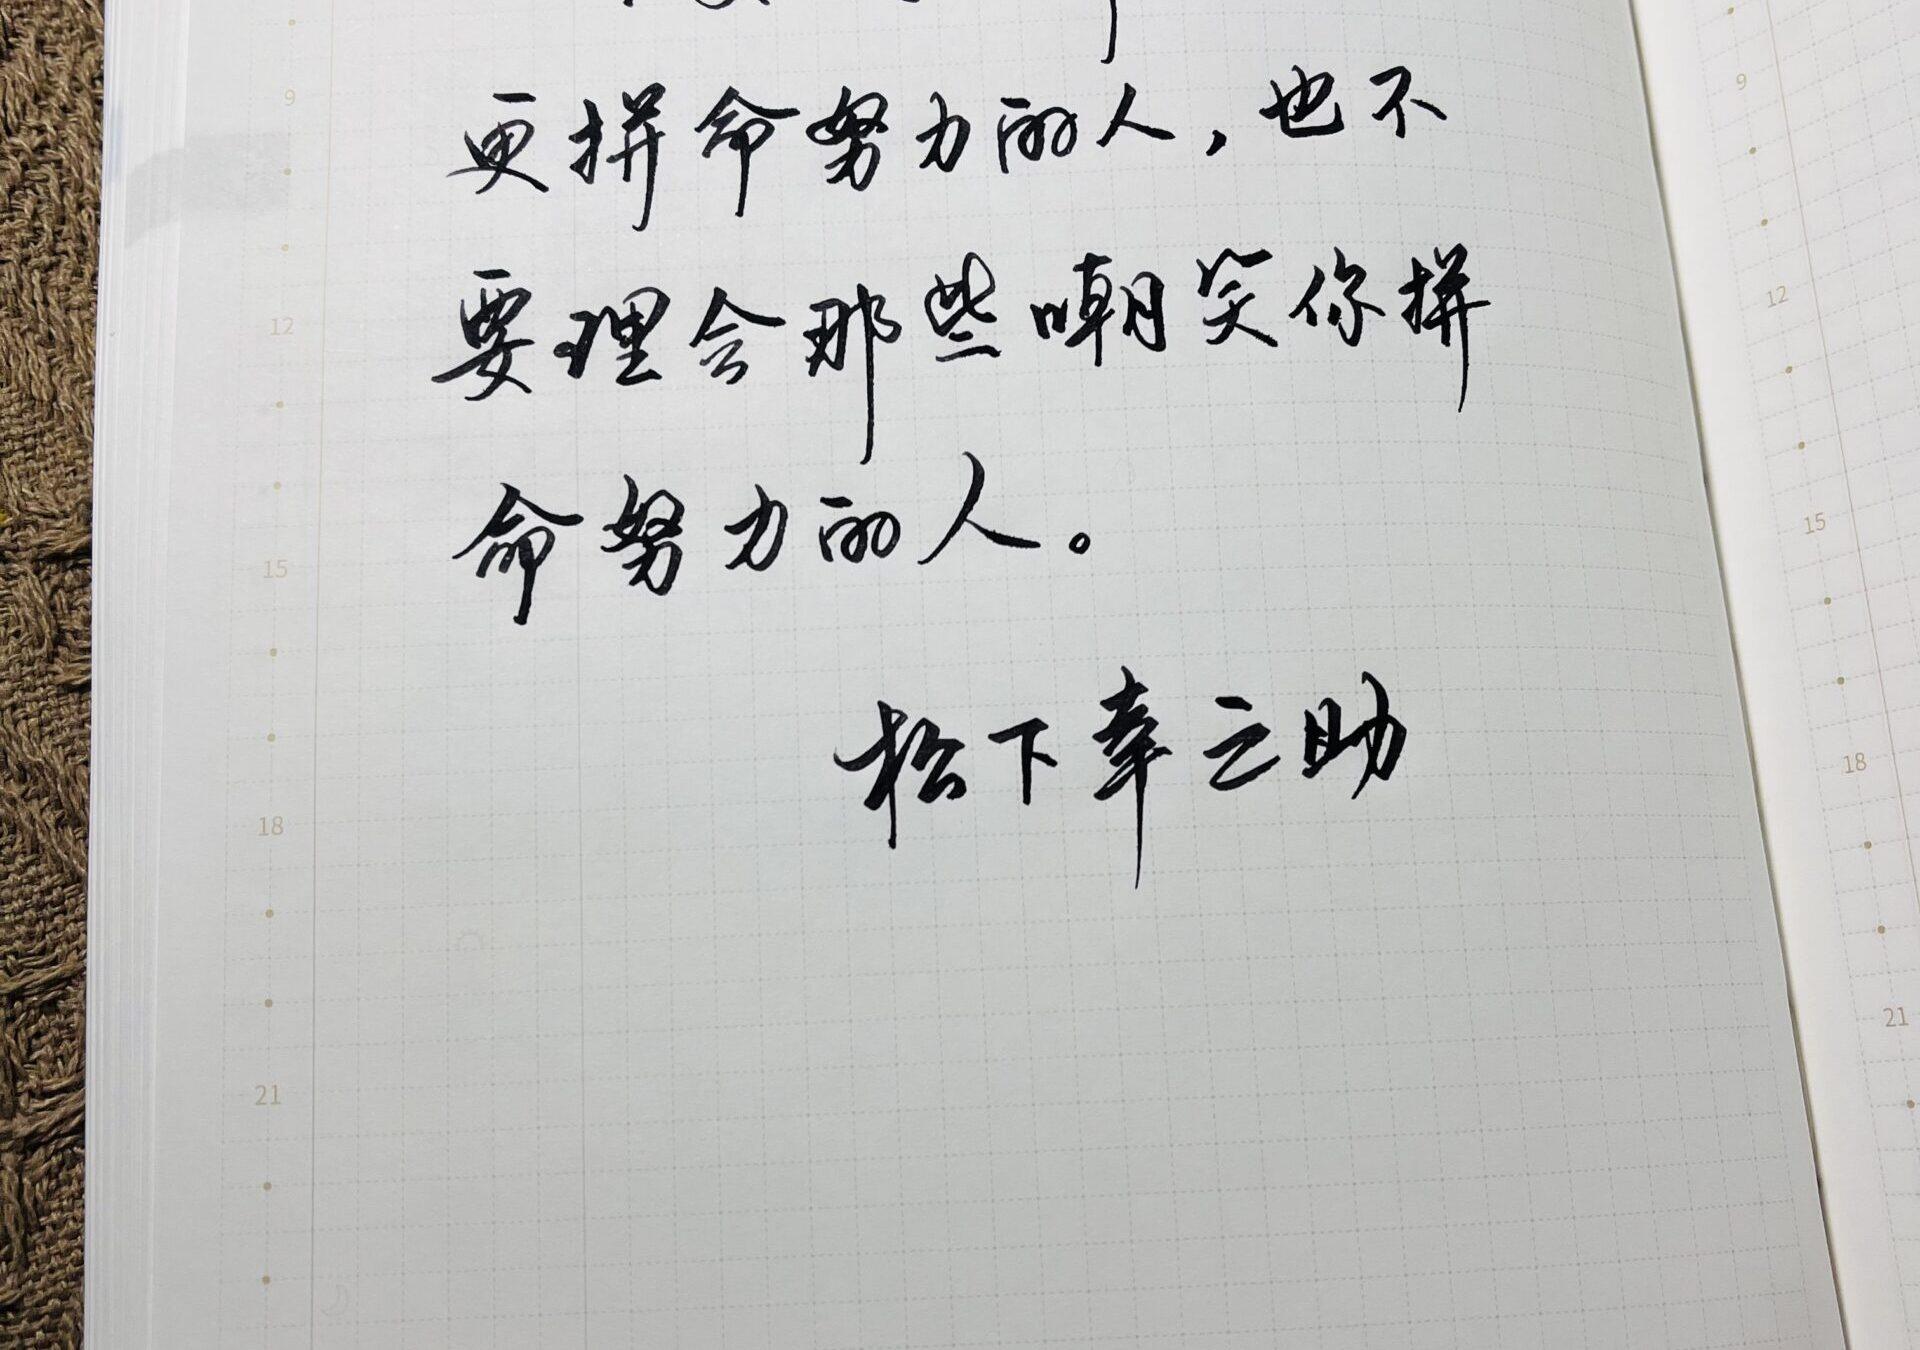 更拼命努力的人，也不
要理会那些嘲笑你拼
命努力的人。
松下幸之助
9
12
15
18
21
9
12
15
18
21